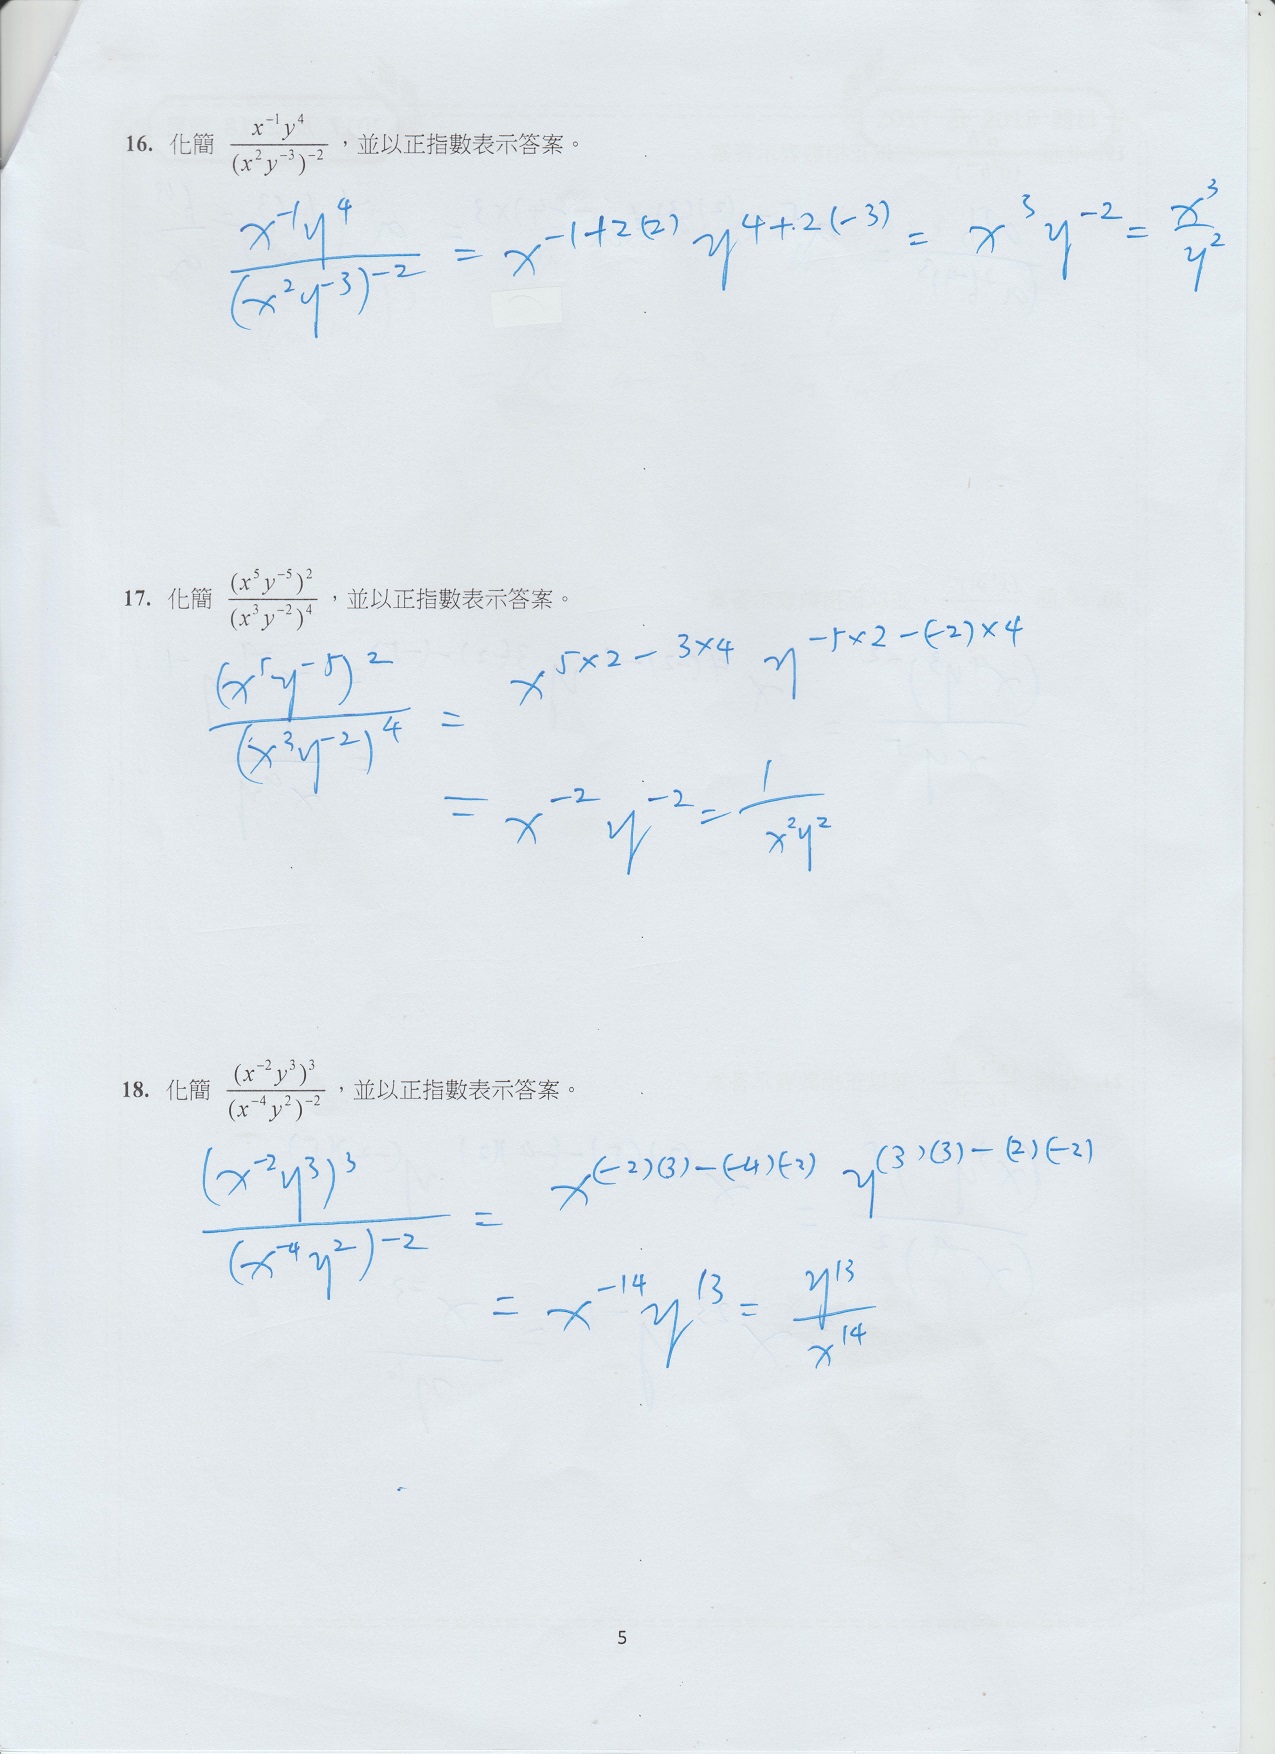 16. 化簡 \frac{x^{-1}y^{4}}{(x^{2}y^{-3})^{-2}}，並以正指數表示答案。
\frac{x^{-1}y^{4}}{(x^{2}y^{-3})^{-2}} = x^{-1+2(2)} y^{4+2(-3)} = x^{3}y^{-2} = \frac{x^{3}}{y^{2}}
17. 化簡 \frac{(x^{5}y^{-5})^{2}}{(x^{3}y^{-2})^{4}}，並以正指數表示答案。
\frac{(x^{5}y^{-5})^{2}}{(x^{3}y^{-2})^{4}} = x^{5×2-3×4} y^{-5×2-(-2)×4}
= x^{-2}y^{-2} = \frac{1}{x^{2}y^{2}}
18. 化簡 \frac{(x^{-2}y^{3})^{3}}{(x^{-4}y^{2})^{-2}}，並以正指數表示答案。
\frac{(x^{-2}y^{3})^{3}}{(x^{-4}y^{2})^{-2}} = x^{(-2)(3)-(-4)(-2)} y^{(3)(3)-(2)(-2)}
= x^{-14}y^{13} = \frac{y^{13}}{x^{14}}
5